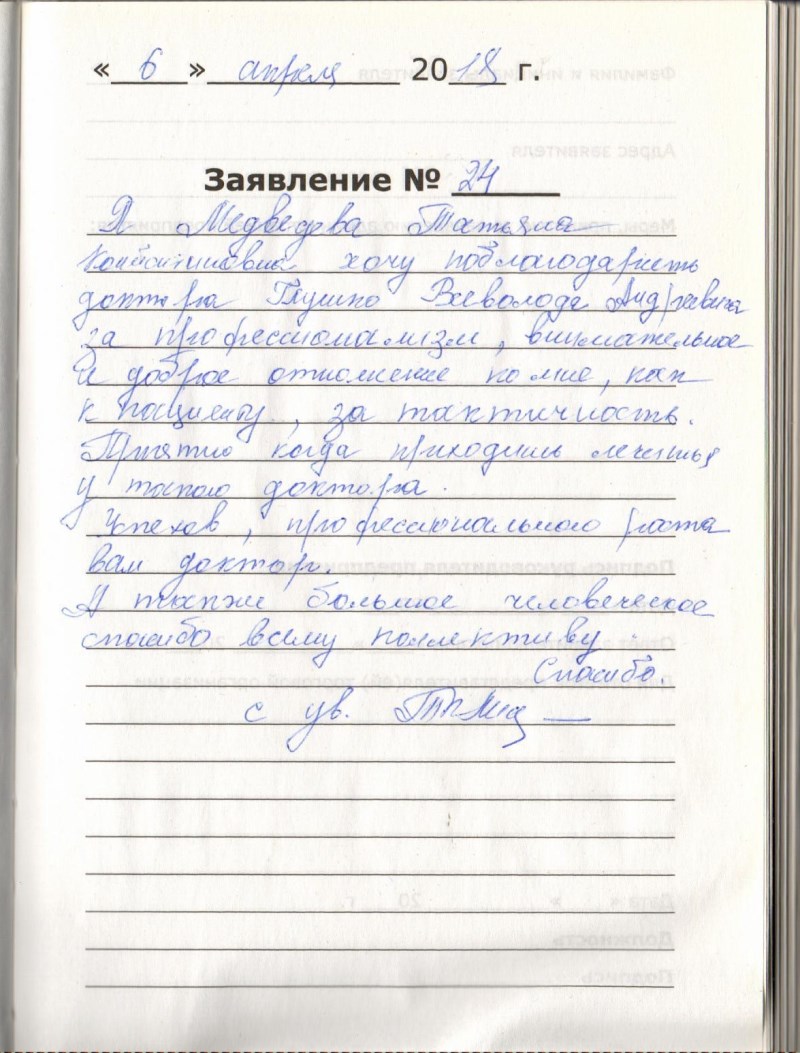 « 6 » апреля 2018 г.
Заявление № 24
Я Медведева Татьяна
Константиновна хочу поблагодарить
доктора Глушко Всеволода Андреевича
за профессионализм, внимательное
и доброе отношение ко мне, как
к пациенту, за тактичность.
Приятно когда приходишь лечиться
у такого доктора.
Успехов, профессионального роста
вам доктор.
А также большое человеческое
спасибо всему коллективу.
Спасибо.
с ув.